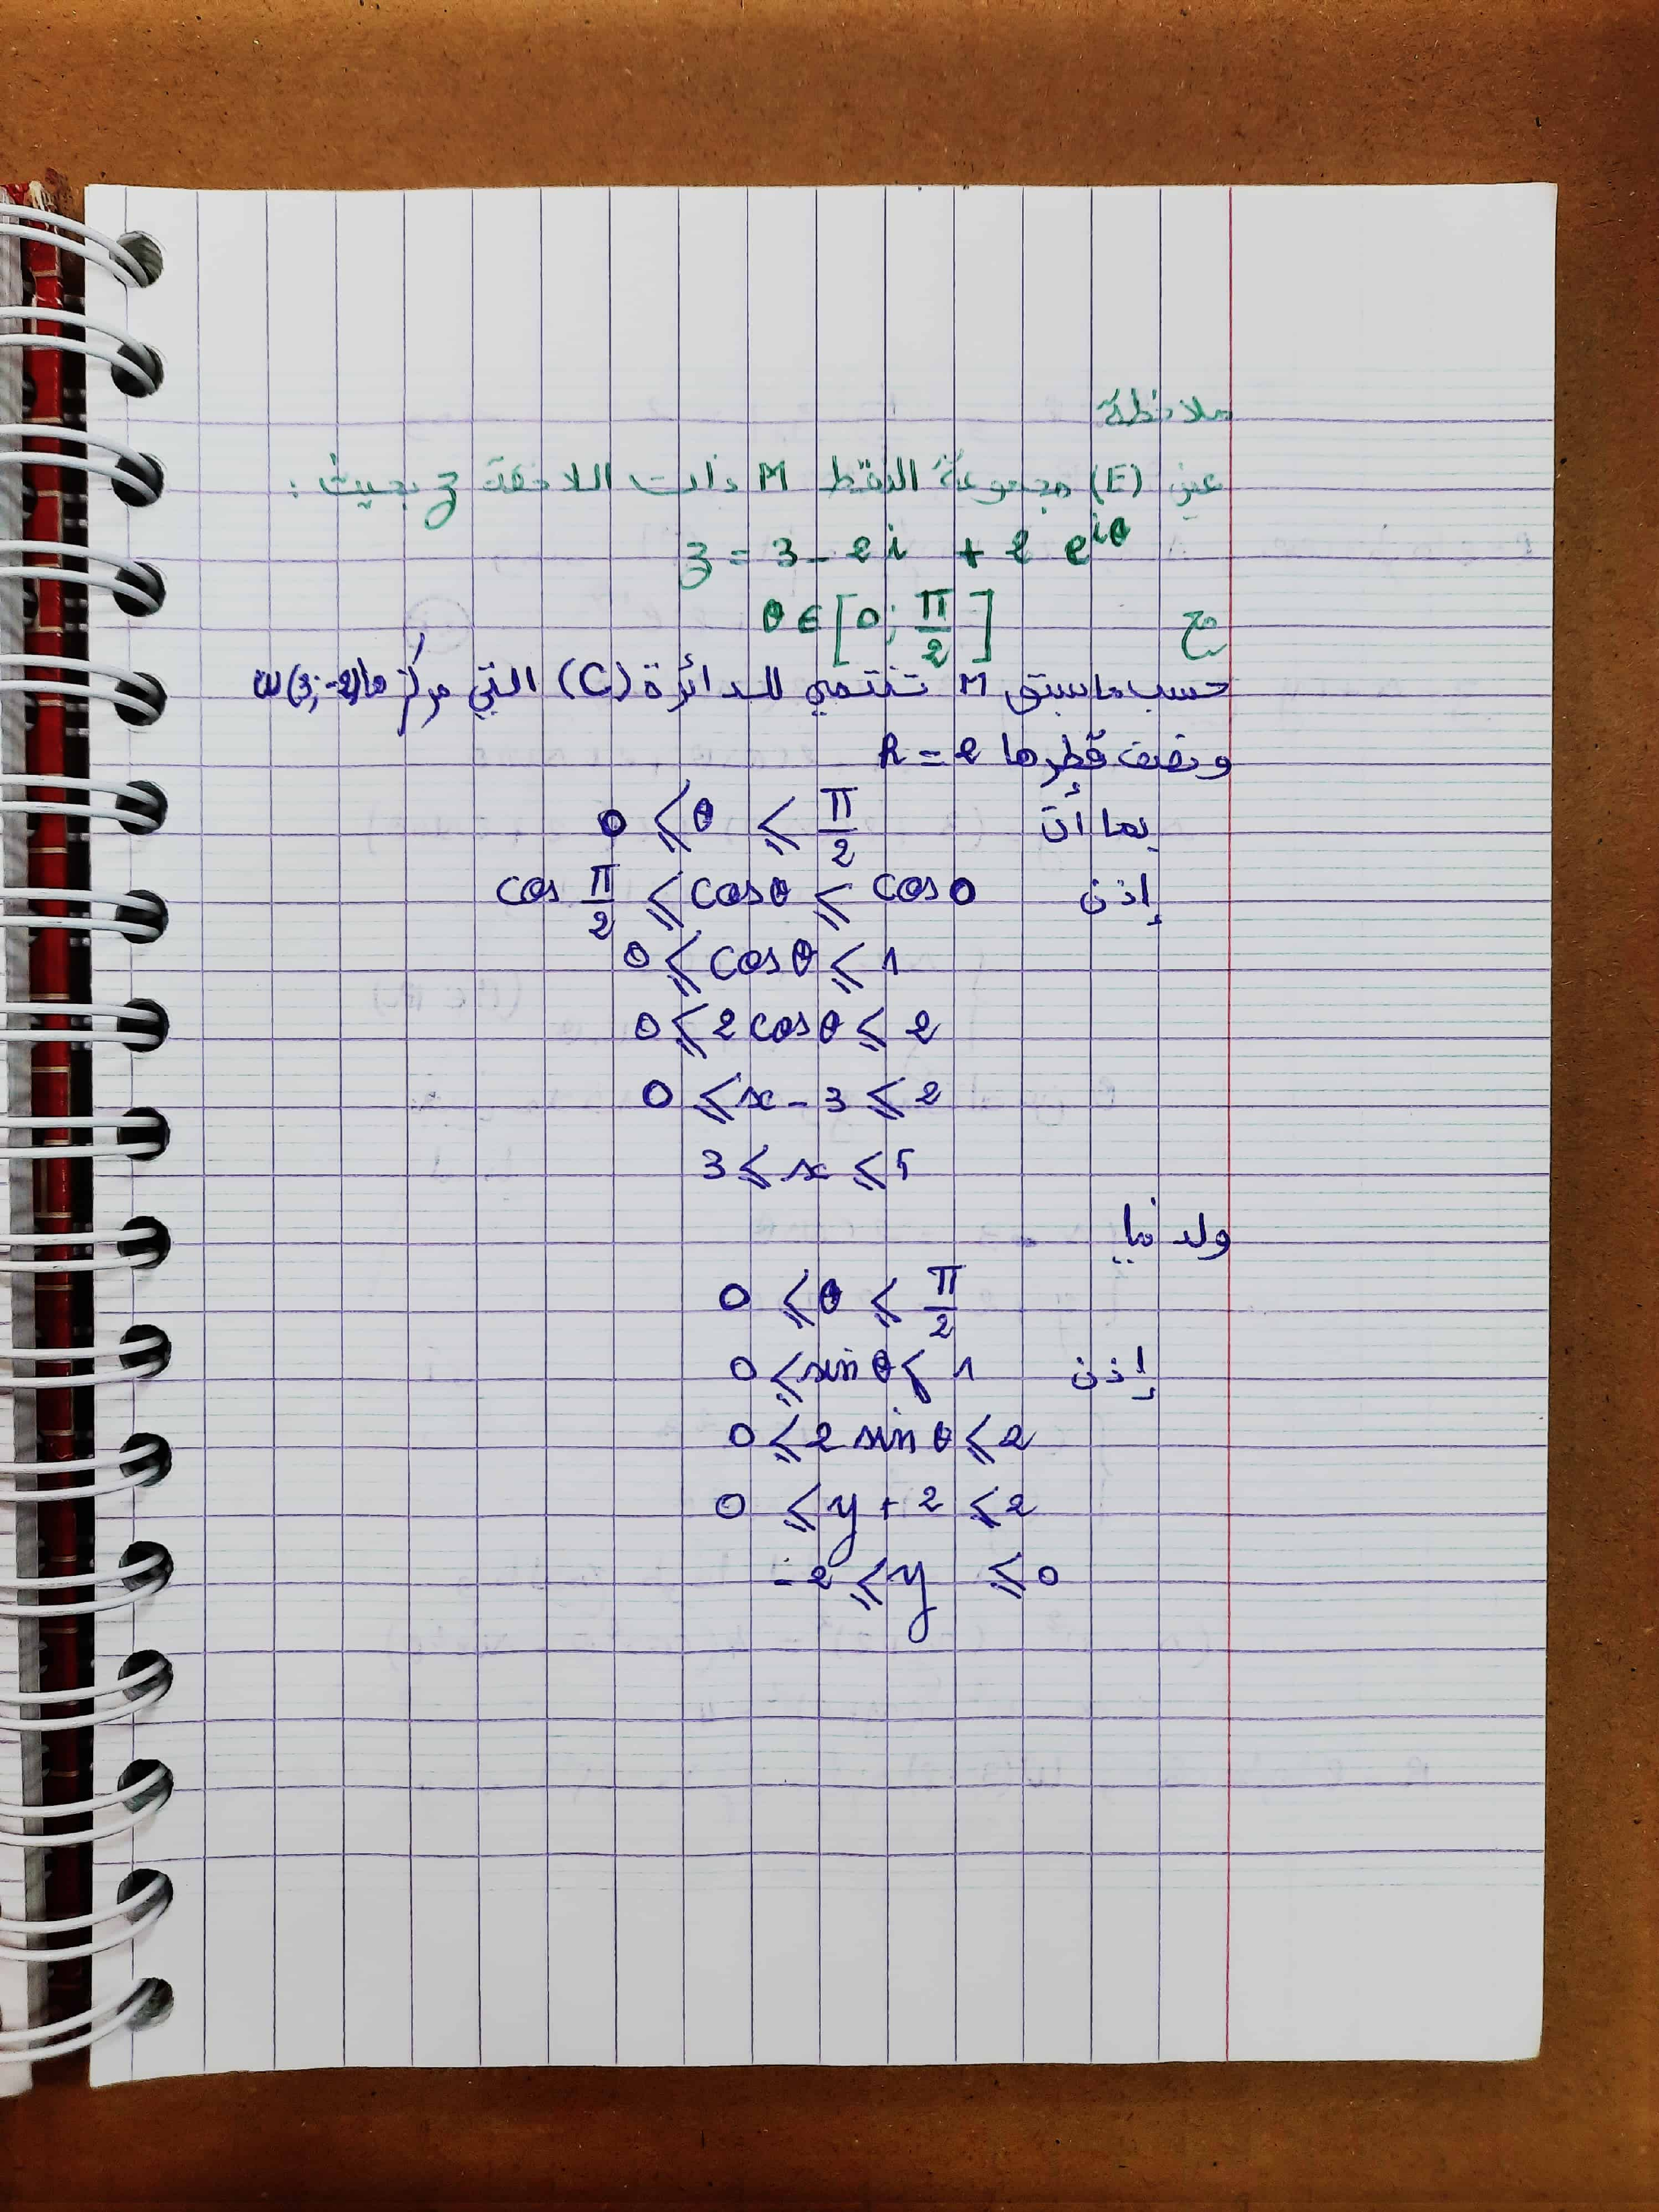 ملاحظة
عين (E) مجموعة النقط M ذات اللاحقة z بحيث :
z = 3 - 2i + 2 e^{iθ}
مع θ ∈ [0; π/2]
حسب ما سبق M تنتمي للدائرة (C) التي مركزها ω(3; -2)
ونصف قطرها R = 2
بما أن 0 ⩽ θ ⩽ π/2
إذن cos π/2 ⩽ cos θ ⩽ cos 0
0 ⩽ cos θ ⩽ 1
0 ⩽ 2 cos θ ⩽ 2
0 ⩽ x - 3 ⩽ 2
3 ⩽ x ⩽ 5
ولدينا
0 ⩽ θ ⩽ π/2
إذن 0 ⩽ sin θ ⩽ 1
0 ⩽ 2 sin θ ⩽ 2
0 ⩽ y + 2 ⩽ 2
-2 ⩽ y ⩽ 0